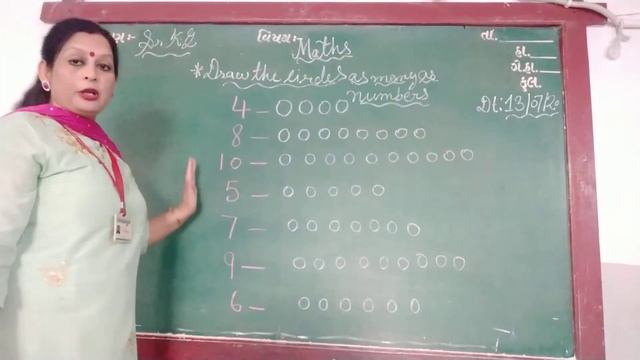 વિષય:- Maths તા.
S.KG હા.
ગે.હા.
કુલ.
* Draw the circles as many as
numbers Dt:13/07/20
4 - ○ ○ ○ ○
8 - ○ ○ ○ ○ ○ ○ ○ ○
10 - ○ ○ ○ ○ ○ ○ ○ ○ ○ ○
5 - ○ ○ ○ ○ ○
7 - ○ ○ ○ ○ ○ ○ ○
9 - ○ ○ ○ ○ ○ ○ ○ ○ ○
6 - ○ ○ ○ ○ ○ ○